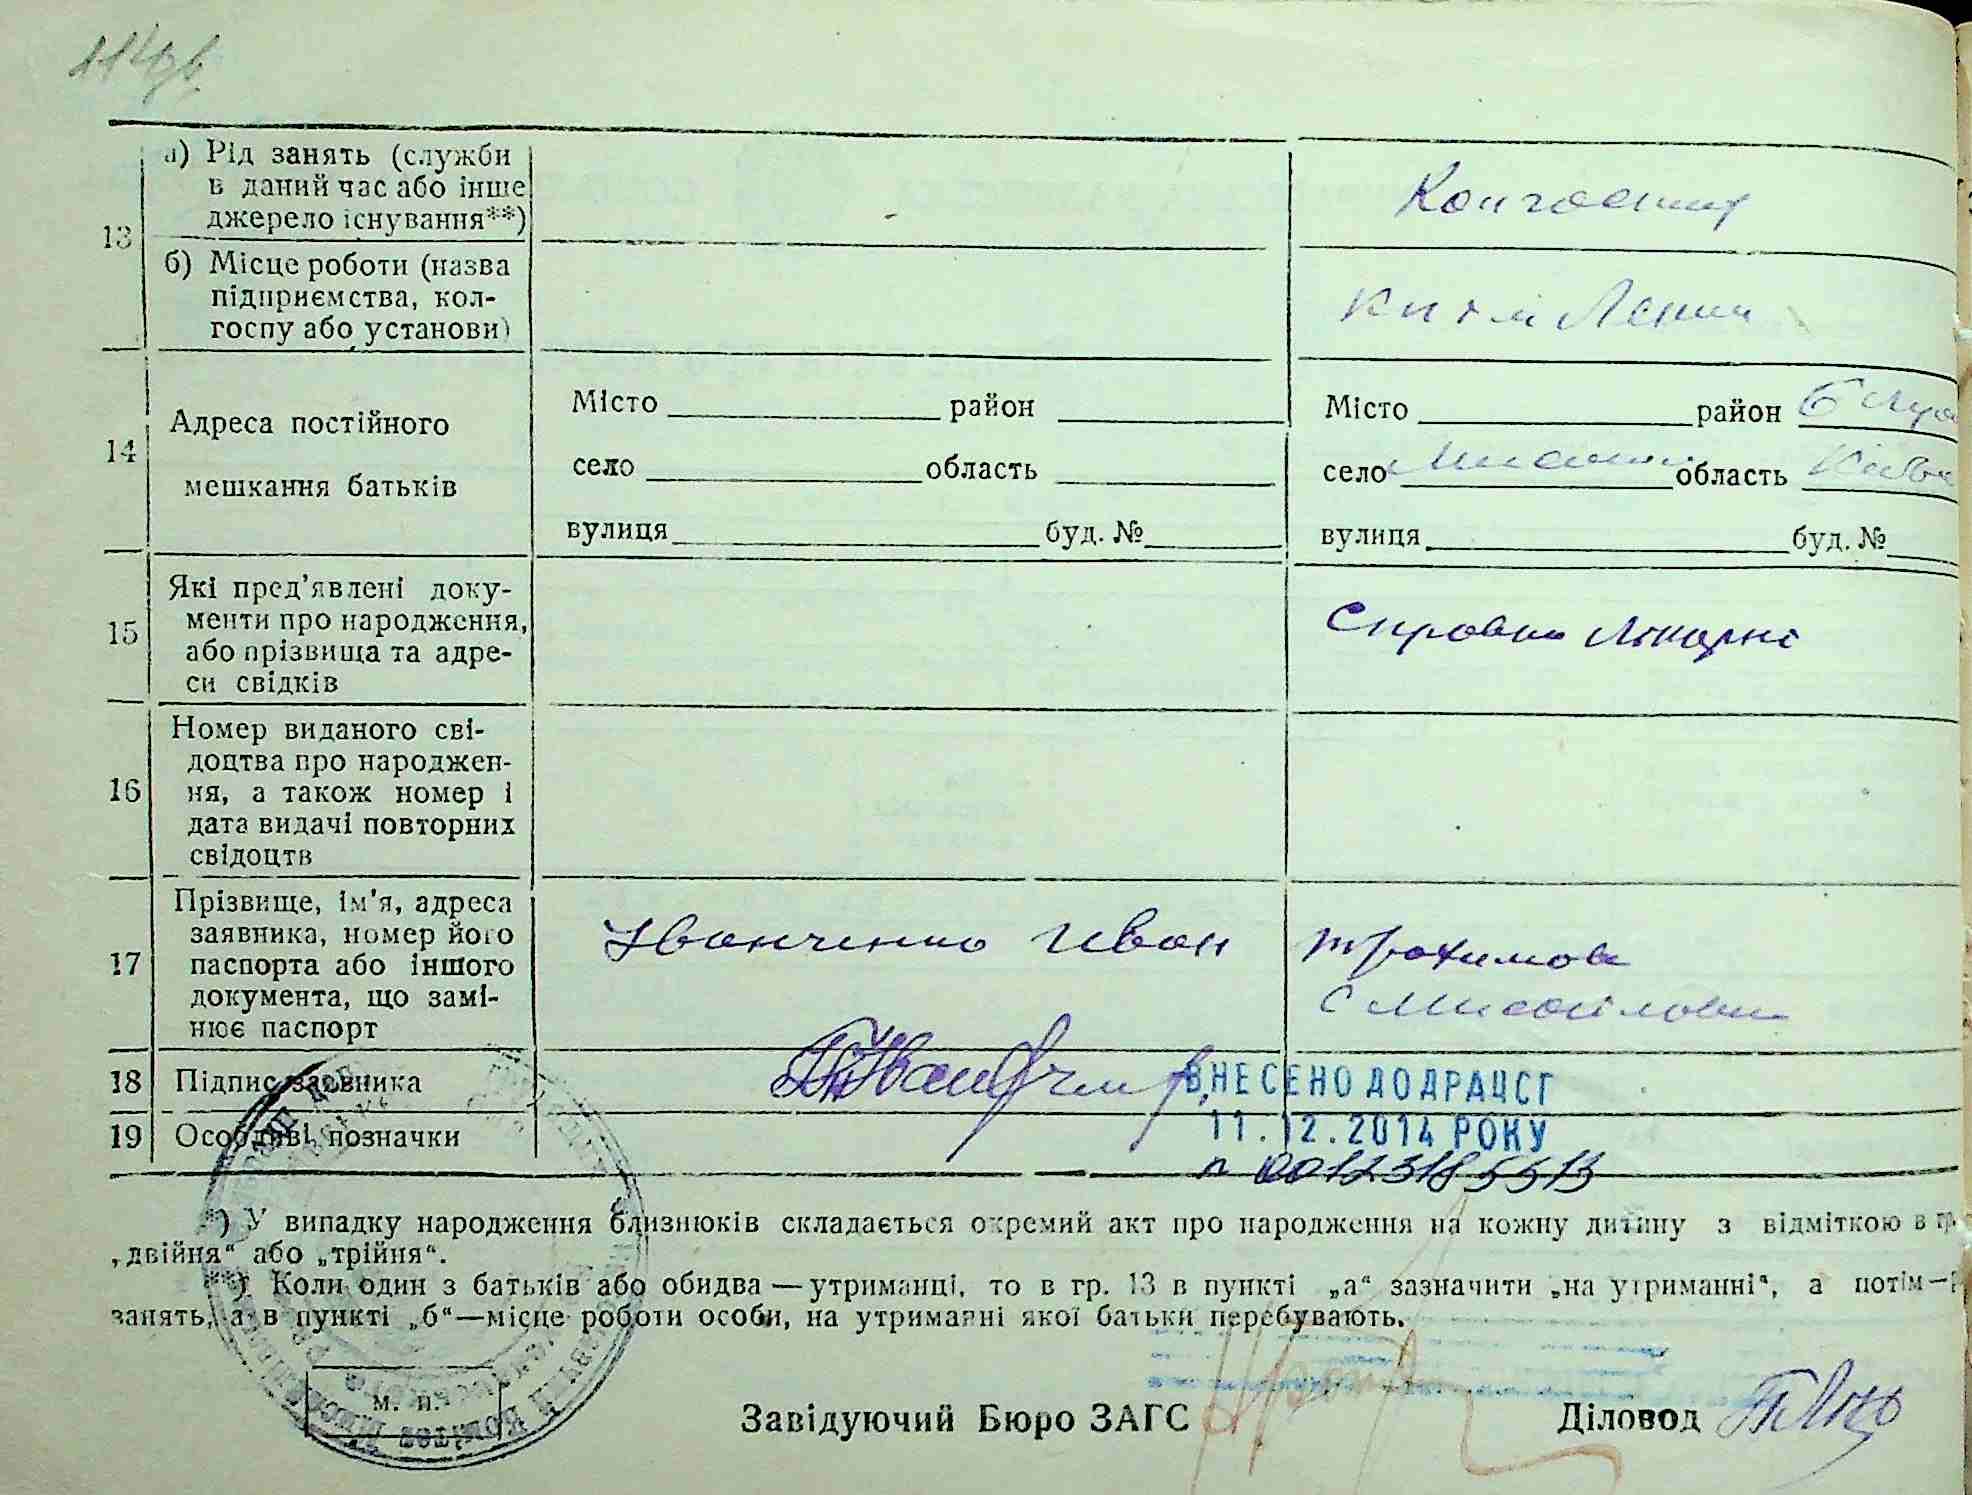 а) Рід занять (служби
в даний час або інше
джерело існування**)
Колгоспник
13
б) Місце роботи (назва
підприємства, кол-
госпу або установи)
Леніна
14
Адреса постійного
мешкання батьків
Місто район
село область
вулиця буд. №
Місто район
село область
вулиця буд. №
15
Які пред'явлені доку-
менти про народження,
або прізвища та адре-
си свідків
Справка лікарні
16
Номер виданого сві-
доцтва про народжен-
ня, а також номер і
дата видачі повторних
свідоцтв
17
Прізвище, ім'я, адреса
заявника, номер його
паспорта або іншого
документа, що замі-
нює паспорт
Іванченко Иван Трохимов
с Мисайловки
18 Підпис заявника
ВНЕСЕНО ДО ДРАЦСГ
19 Особливі позначки
11.12.2014 РОКУ
*) У випадку народження близнюків складається окремий акт про народження на кожну дитину з відміткою в гр.
„двійня“ або „трійня“.
**) Коли один з батьків або обидва — утриманці, то в гр. 13 в пункті „а“ зазначити „на утриманні“, а потім—
занять, а в пункті „б“—місце роботи особи, на утриманні якої батьки перебувають.
м. п.
Завідуючий Бюро ЗАГС Діловод